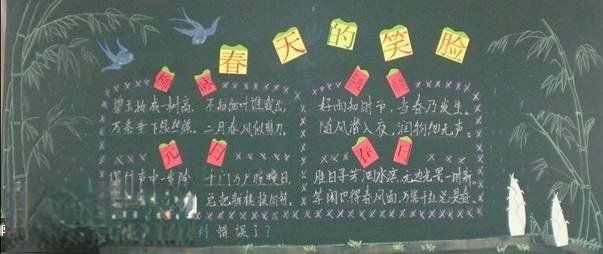 春天的笑脸
咏柳
碧玉妆成一树高，不知细叶谁裁出，
万条垂下绿丝绦。二月春风似剪刀。
好雨知时节，当春乃发生。
随风潜入夜，润物细无声。
元日
声中一岁除 千门万户曈曈日
总把新桃换旧符
春日
胜日寻芳泗水滨，无边光景一时新
等闲识得春风面，万紫千红总是春
错误了？